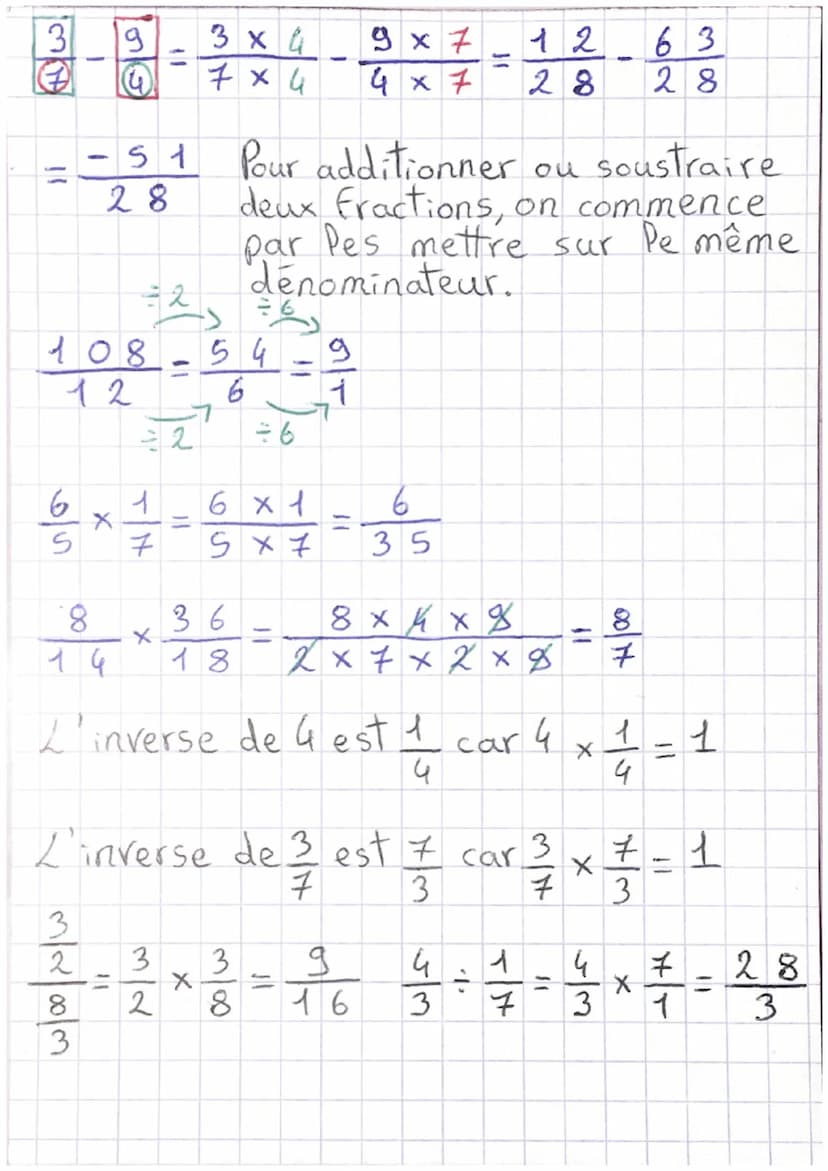 3/7 - 9/4 = 3 × 4 / 7 × 4 - 9 × 7 / 4 × 7 = 12/28 - 63/28
= -51/28 Pour additionner ou soustraire
deux fractions, on commence
par les mettre sur le même
dénominateur.
÷2 ÷6
108/12 = 54/6 = 9/1
÷2 ÷6
6/5 × 1/7 = 6 × 1 / 5 × 7 = 6/35
8/14 × 36/18 = 8 × 4 × 9 / 2 × 7 × 2 × 9 = 8/7
L'inverse de 4 est 1/4 car 4 × 1/4 = 1
L'inverse de 3/7 est 7/3 car 3/7 × 7/3 = 1
3/2 / 8/3 = 3/2 × 3/8 = 9/16 4/3 ÷ 1/7 = 4/3 × 7/1 = 28/3